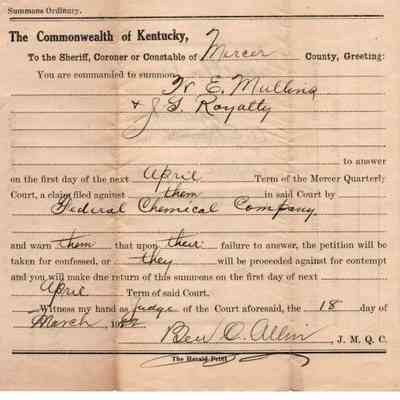 Summons Ordinary.
The Commonwealth of Kentucky,
To the Sheriff, Coroner or Constable of Mercer County, Greeting:
You are commanded to summon W E. Mullins
& J. S. Royalty
to answer
on the first day of the next April Term of the Mercer Quarterly
Court, a claim filed against them in said Court by
Federal Chemical Company
and warn them that upon their failure to answer, the petition will be
taken for confessed, or they will be proceeded against for contempt
and you will make due return of this summons on the first day of next
April Term of said Court.
Witness my hand as Judge of the Court aforesaid, the 18 day of
March,
Ben O. Allin, J. M. Q. C.
The Herald Print